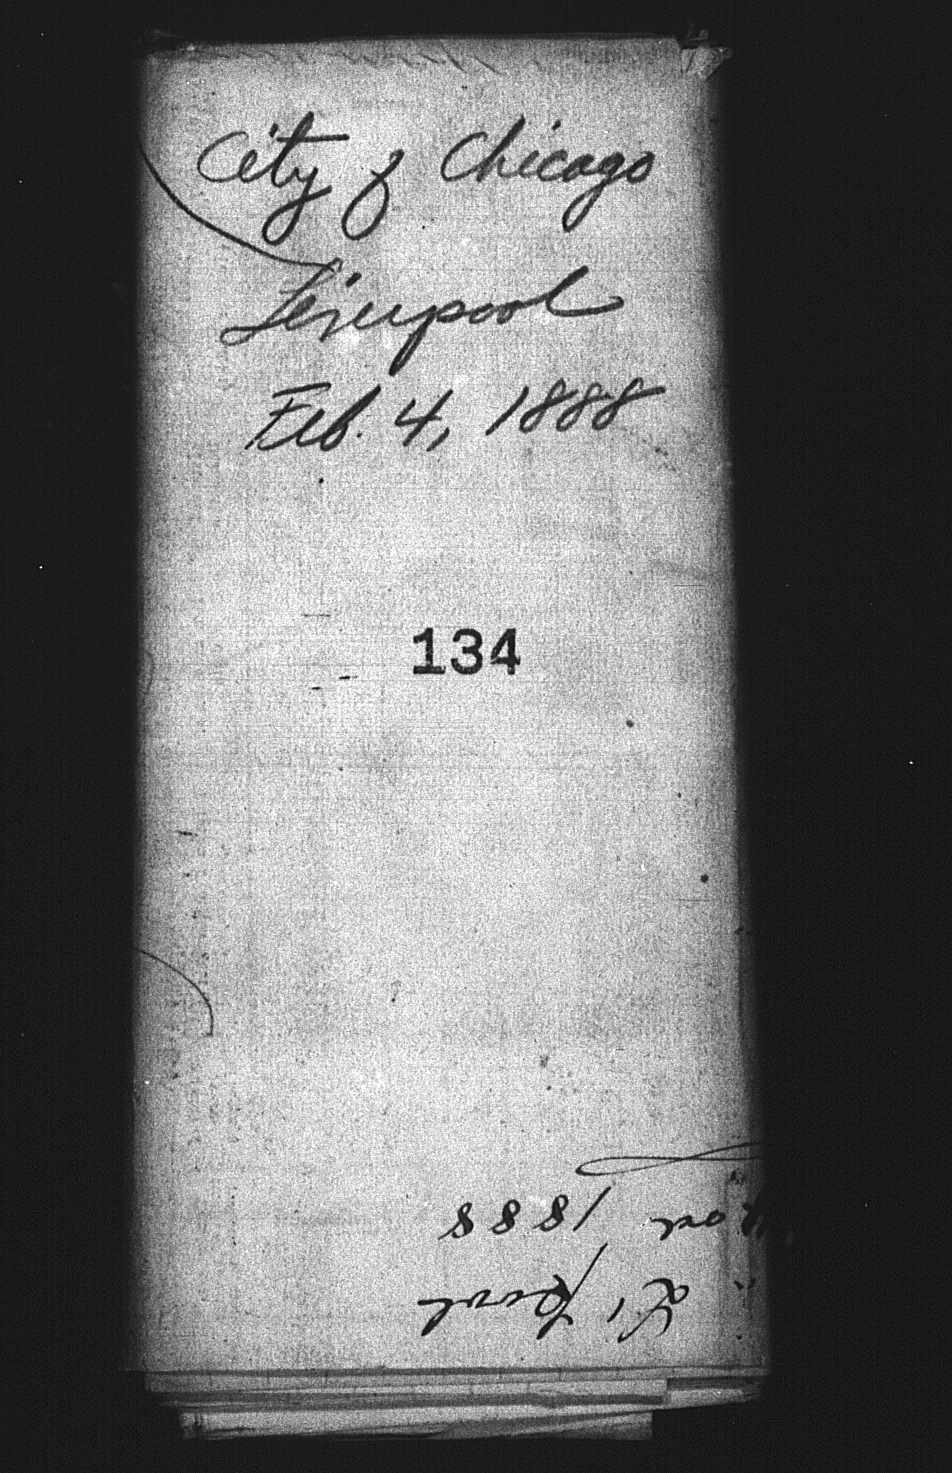 City of Chicago
Liverpool
Feb. 4, 1888
134
1888
L'pool